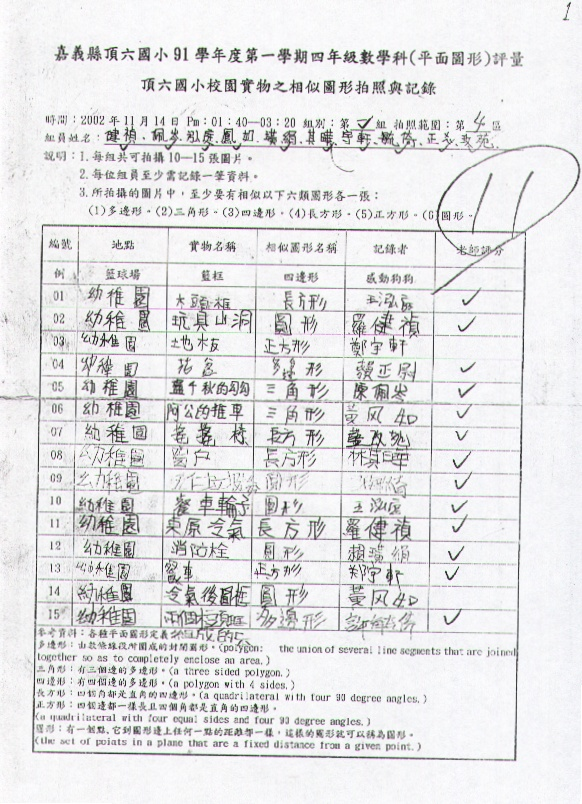 1
嘉義縣頂六國小91學年度第一學期四年級數學科(平面圖形)評量
頂六國小校園實物之相似圖形拍照與記錄
時間：2002年11月14日 Pm：01：40—03：20 組別：第 組 拍照範圍：第4區
組員姓名：健禎、佩岑、
說明：1.每組共可拍攝10—15張圖片。
2.每位組員至少需記錄一筆資料。
3.所拍攝的圖片中，至少要有相似以下六類圖形各一張：
(1)多邊形。(2)三角形。(3)四邊形。(4)長方形。(5)正方形。(6)圓形。
11
編號 地點 實物名稱 相似圖形名稱 記錄者 老師評分
例 籃球場 籃框 四邊形 感動狗狗
01 幼稚園 木頭框 長方形 王泓
02 幼稚園 玩具山洞 圓形 羅健禎
03 幼稚園 地板 正方形 鄭宇軒
04 幼稚園 多邊形
05 幼稚園 盪千秋的勾勾 三角形 陳佩岑
06 幼稚園 阿公的推車 三角形 黃风如
07 幼稚園 長方形
08 幼稚園 窗戶 長方形 林其曄
09 幼稚園 圓形
10 幼稚園 車輪子 圓形 王泓
11 幼稚園 冷氣 長方形 羅健禎
12 幼稚園 消防栓 圓形 賴瑀絹
13 幼稚園 車 正方形 鄭宇軒
14 幼稚園 冷氣後圓框 圓形 黃风如
15 幼稚園 兩個 組成的 多邊形
參考資料：各種平面圖形定義
多邊形：由數條線段所圍成的封閉圖形。(polygon: the union of several line segments that are joined
together so as to completely enclose an area.)
三角形：有三個邊的多邊形。(a three sided polygon.)
四邊形：有四個邊的多邊形。(a polygon with 4 sides.)
長方形：四個角都是直角的四邊形。(a quadrilateral with four 90 degree angles.)
正方形：四個邊都一樣長且四個角都是直角的四邊形。
(a quadrilateral with four equal sides and four 90 degree angles.)
圓形：有一個點，它到圖形邊上任何一點的距離都一樣，這樣的圖形就可以稱為圓形。
(the set of points in a plane that are a fixed distance from a given point.)